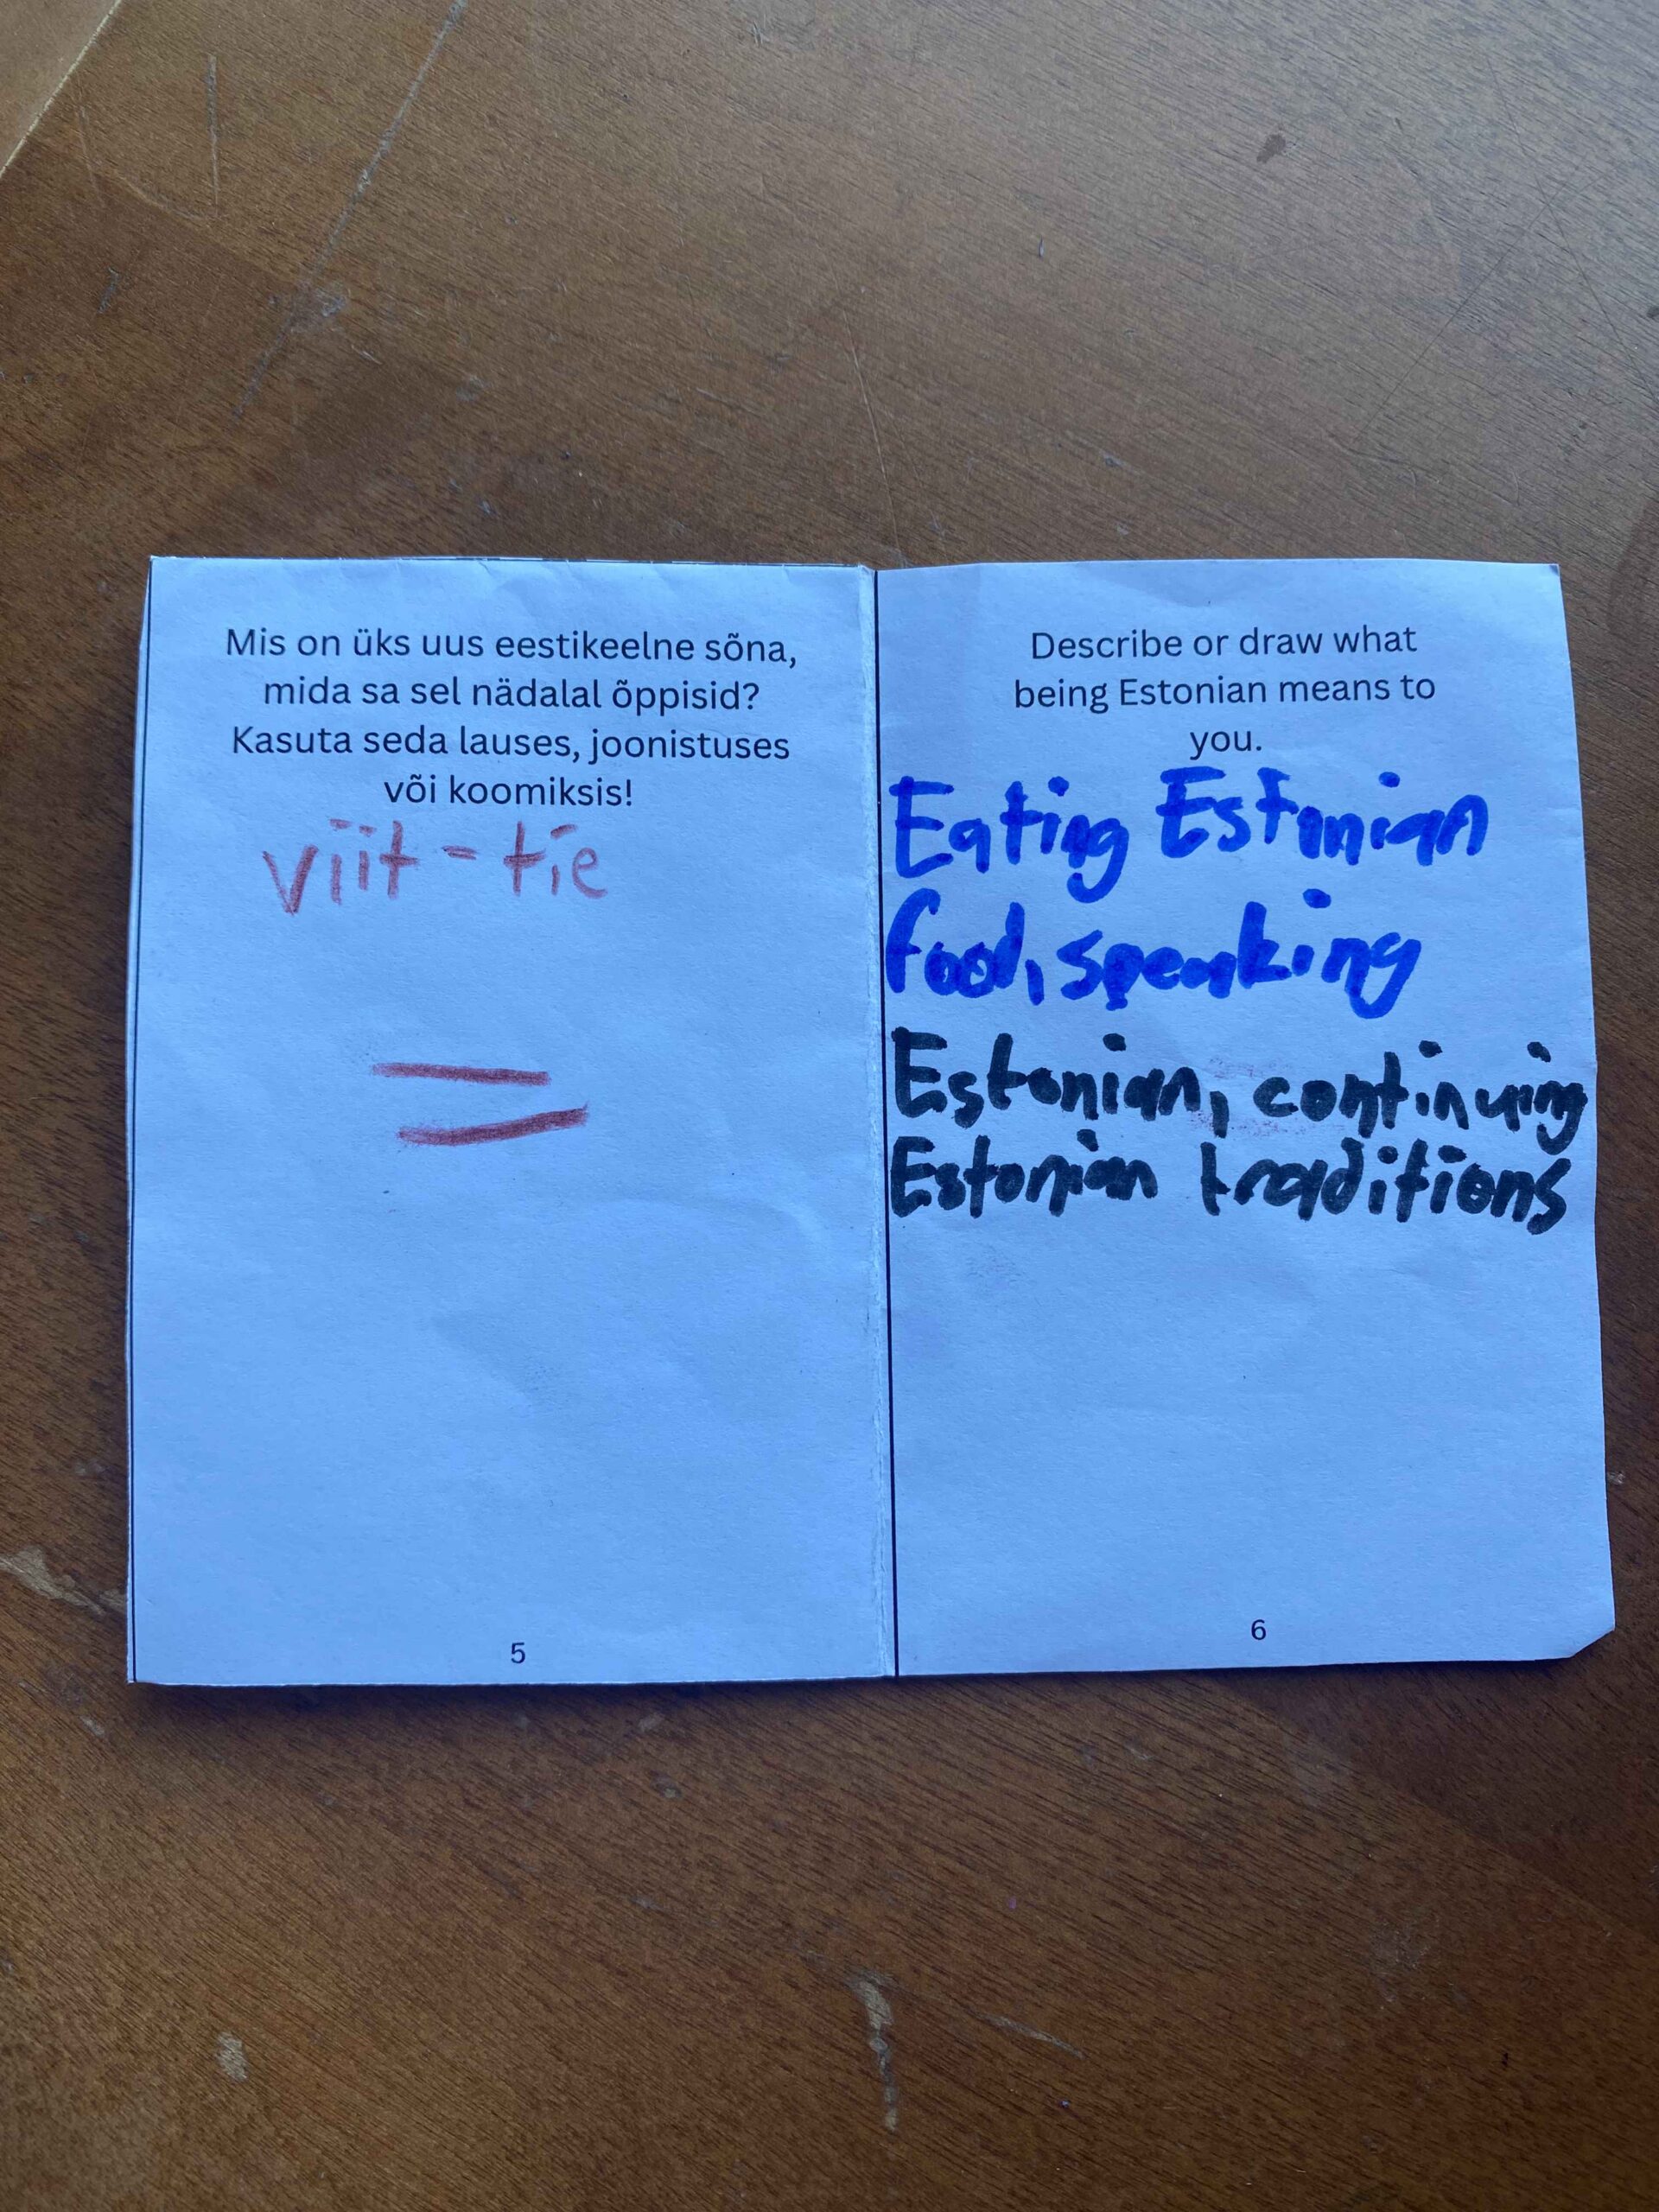 Mis on üks uus eestikeelne sõna,
mida sa sel nädalal õppisid?
Kasuta seda lauses, joonistuses
või koomiksis!
viit - tie
5
Describe or draw what
being Estonian means to
you.
Eating Estonian
food, speaking
Estonian, continuing
Estonian traditions
6